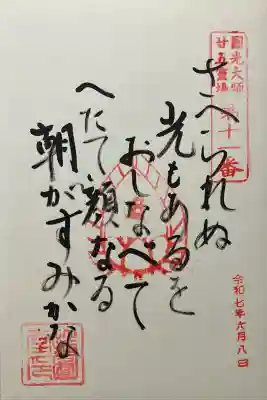 圓光大師
廿五霊場
第十一番
さへられぬ
光もあるを
おしなべて
へたて顔なる
朝がすみかな
令和七年六月八日